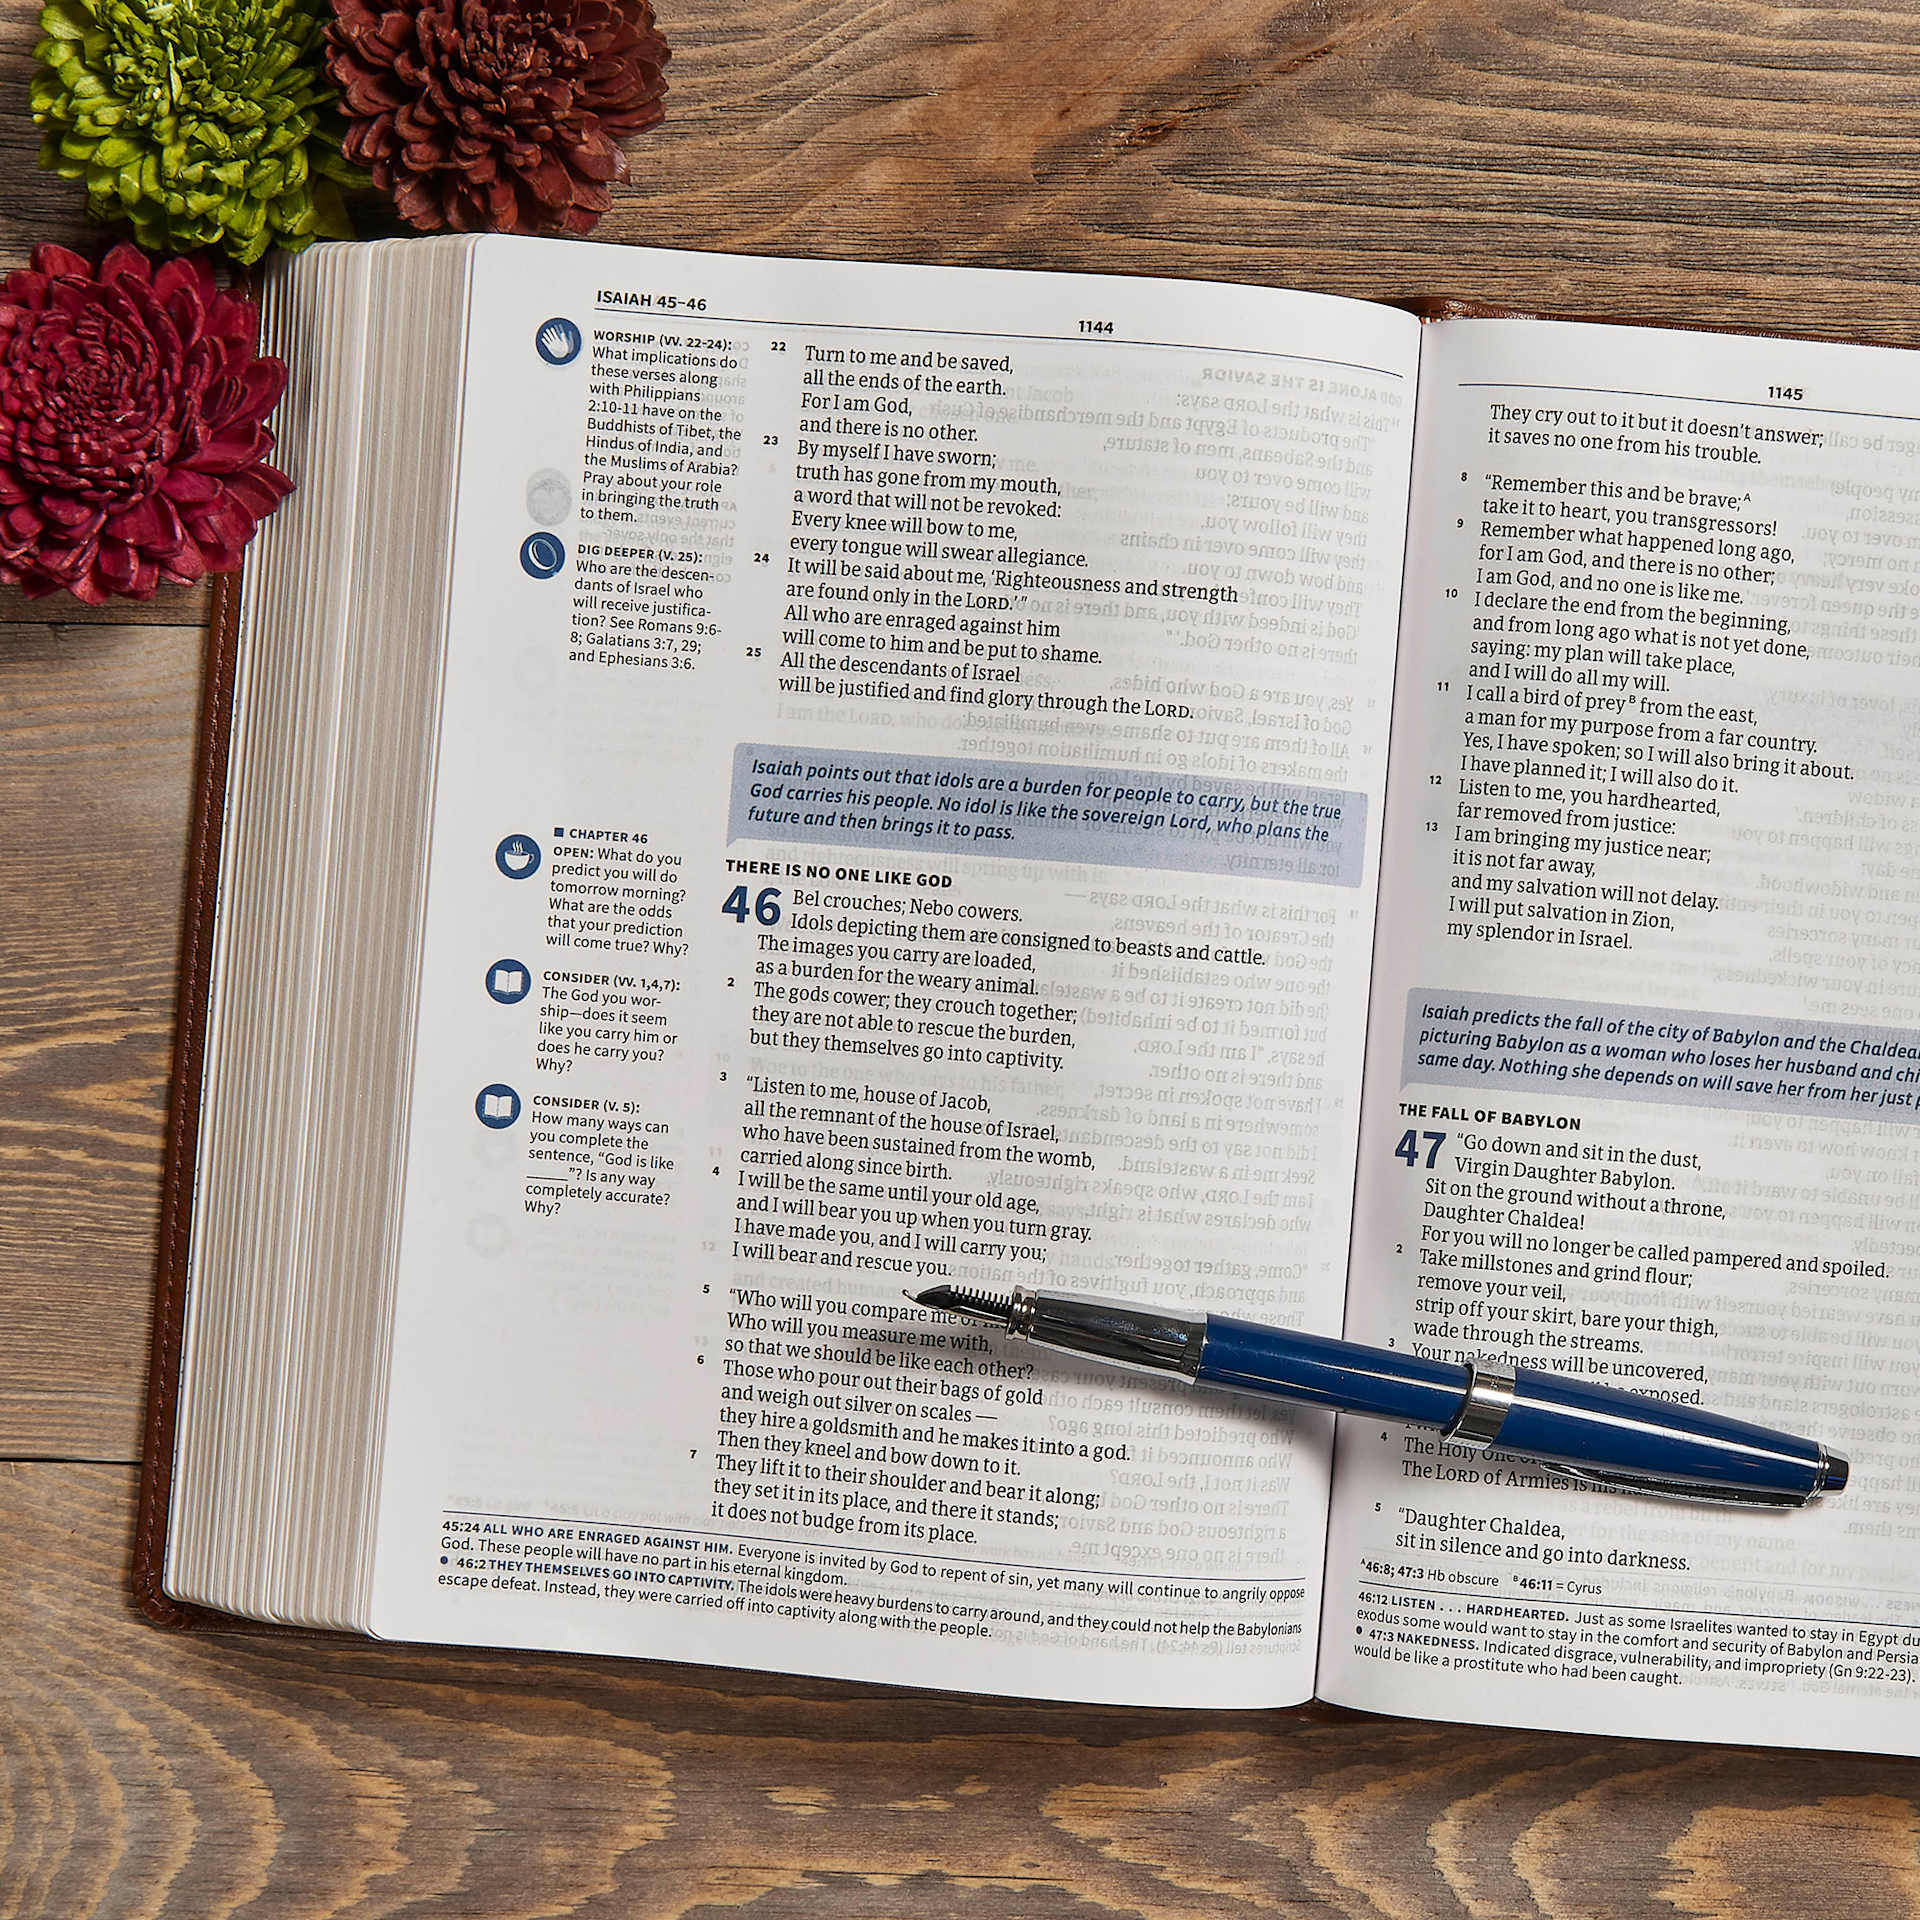 ISAIAH 45–46
1144
WORSHIP (VV. 22-24):
What implications do
these verses along
with Philippians
2:10-11 have on the
Buddhists of Tibet, the
Hindus of India, and
the Muslims of Arabia?
Pray about your role
in bringing the truth
to them.
DIG DEEPER (V. 25):
Who are the descen-
dants of Israel who
will receive justifica-
tion? See Romans 9:6-
8; Galatians 3:7, 29;
and Ephesians 3:6.
■ CHAPTER 46
OPEN: What do you
predict you will do
tomorrow morning?
What are the odds
that your prediction
will come true? Why?
CONSIDER (VV. 1,4,7):
The God you wor-
ship—does it seem
like you carry him or
does he carry you?
Why?
CONSIDER (V. 5):
How many ways can
you complete the
sentence, “God is like
_____”? Is any way
completely accurate?
Why?
22 Turn to me and be saved,
all the ends of the earth.
For I am God,
and there is no other.
23 By myself I have sworn;
truth has gone from my mouth,
a word that will not be revoked:
Every knee will bow to me,
every tongue will swear allegiance.
24 It will be said about me, ‘Righteousness and strength
are found only in the LORD.’”
All who are enraged against him
will come to him and be put to shame.
25 All the descendants of Israel
will be justified and find glory through the LORD.
Isaiah points out that idols are a burden for people to carry, but the true
God carries his people. No idol is like the sovereign Lord, who plans the
future and then brings it to pass.
THERE IS NO ONE LIKE GOD
46 Bel crouches; Nebo cowers.
Idols depicting them are consigned to beasts and cattle.
The images you carry are loaded,
as a burden for the weary animal.
2 The gods cower; they crouch together;
they are not able to rescue the burden,
but they themselves go into captivity.
3 “Listen to me, house of Jacob,
all the remnant of the house of Israel,
who have been sustained from the womb,
carried along since birth.
4 I will be the same until your old age,
and I will bear you up when you turn gray.
I have made you, and I will carry you;
I will bear and rescue you.
5 “Who will you compare me or
Who will you measure me with,
so that we should be like each other?
6 Those who pour out their bags of gold
and weigh out silver on scales —
they hire a goldsmith and he makes it into a god.
Then they kneel and bow down to it.
7 They lift it to their shoulder and bear it along;
they set it in its place, and there it stands;
it does not budge from its place.
45:24 ALL WHO ARE ENRAGED AGAINST HIM. Everyone is invited by God to repent of sin, yet many will continue to angrily oppose
God. These people will have no part in his eternal kingdom.
• 46:2 THEY THEMSELVES GO INTO CAPTIVITY. The idols were heavy burdens to carry around, and they could not help the Babylonians
escape defeat. Instead, they were carried off into captivity along with the people.
1145
They cry out to it but it doesn’t answer;
it saves no one from his trouble.
8 “Remember this and be brave;A
take it to heart, you transgressors!
9 Remember what happened long ago,
for I am God, and there is no other;
I am God, and no one is like me.
10 I declare the end from the beginning,
and from long ago what is not yet done,
saying: my plan will take place,
and I will do all my will.
11 I call a bird of preyB from the east,
a man for my purpose from a far country.
Yes, I have spoken; so I will also bring it about.
I have planned it; I will also do it.
12 Listen to me, you hardhearted,
far removed from justice:
13 I am bringing my justice near;
it is not far away,
and my salvation will not delay.
I will put salvation in Zion,
my splendor in Israel.
Isaiah predicts the fall of the city of Babylon and the Chaldea
picturing Babylon as a woman who loses her husband and chi
same day. Nothing she depends on will save her from her just
THE FALL OF BABYLON
47 “Go down and sit in the dust,
Virgin Daughter Babylon.
Sit on the ground without a throne,
Daughter Chaldea!
For you will no longer be called pampered and spoiled.
2 Take millstones and grind flour;
remove your veil,
strip off your skirt, bare your thigh,
wade through the streams.
3 Your nakedness will be uncovered,
exposed.
4 The Holy One of
The LORD of Armies is his
5 “Daughter Chaldea,
sit in silence and go into darkness.
A46:8; 47:3 Hb obscure B46:11 = Cyrus
46:12 LISTEN . . . HARDHEARTED. Just as some Israelites wanted to stay in Egypt du
exodus some would want to stay in the comfort and security of Babylon and Persia
• 47:3 NAKEDNESS. Indicated disgrace, vulnerability, and impropriety (Gn 9:22-23).
would be like a prostitute who had been caught.